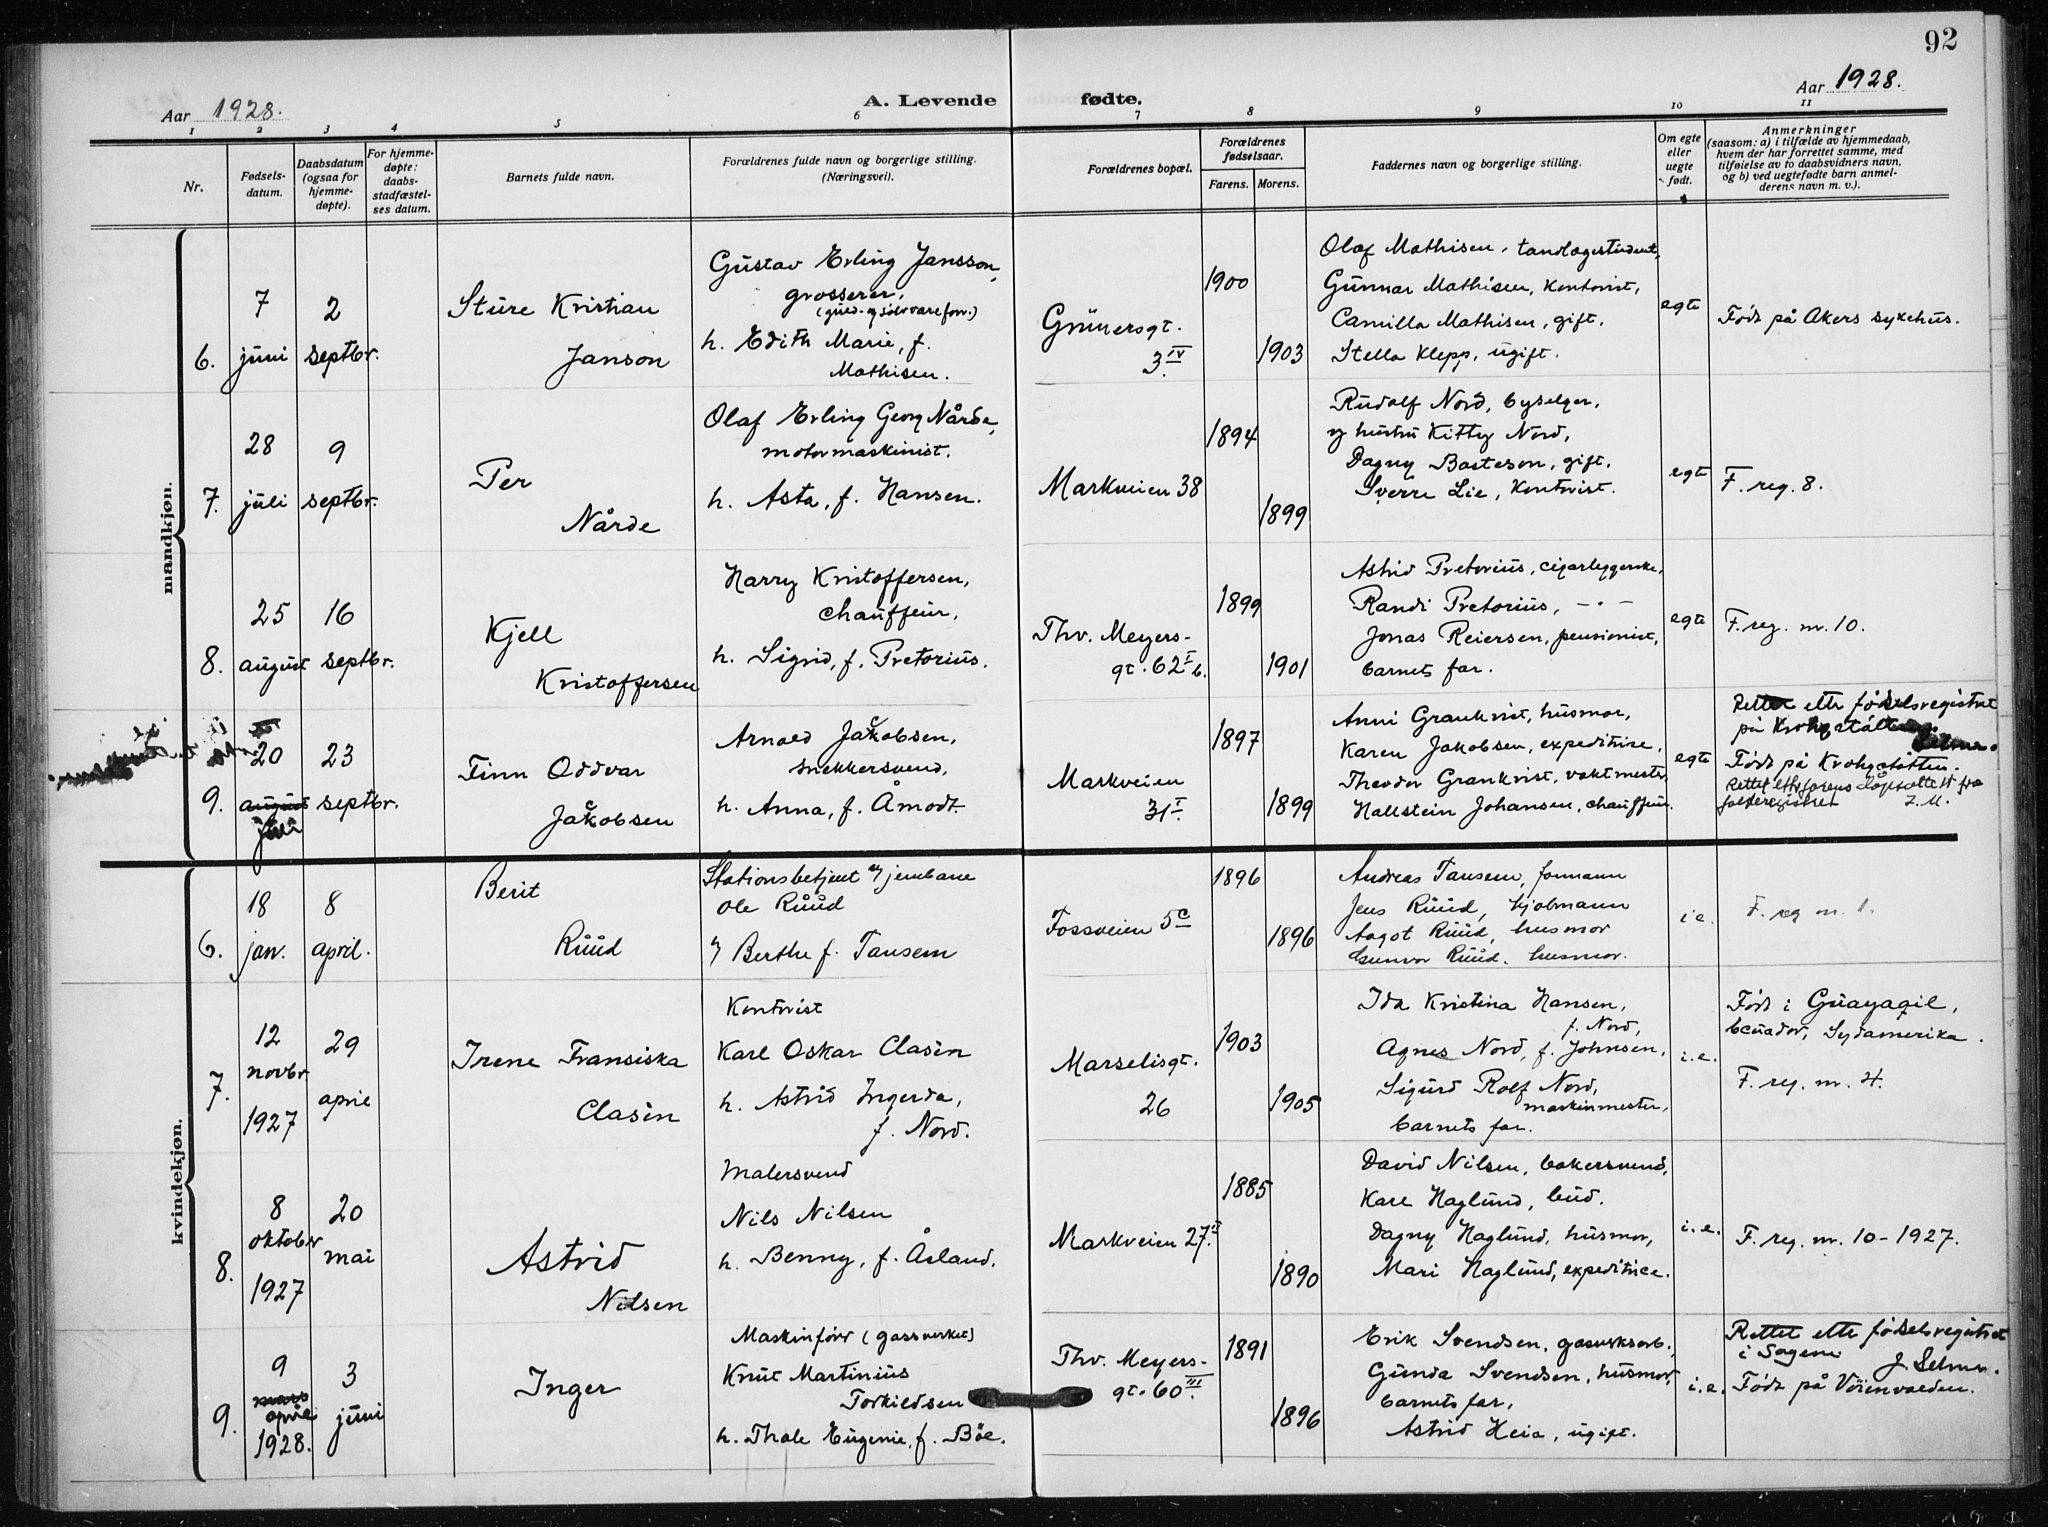 92
Aar 1928.
A. Levende fødte.
Aar 1928.
1 2 3 4 5 6 7 8 9 10 11
Nr.
Fødsels-
datum.
Daabsdatum
(ogsaa for
hjemme-
døpte).
For hjemme-
døpte:
daabs-
stadfæstel-
ses datum.
Barnets fulde navn.
Forældrenes fulde navn og borgerlige stilling.
(Næringsvei).
Forældrenes bopæl.
Forældrenes
fødselsaar.
Farens. Morens.
Faddernes navn og borgerlige stilling.
Om egte
eller
uegte
født.
Anmerkninger
(saasom: a) i tilfælde av hjemmedaab,
hvem der har forrettet samme, med
tilføielse av to daabsvidners navn,
og b) ved uegtefødte barn anmel-
derens navn m. v.).
mandkjøn.
6.
7
juni
2
septbr.
Sture Kristian
Janson
Gustav Erling Jansson,
grosserer,
(guld- og sølvvareforr.)
h. Edith Marie, f.
Mathisen.
Grünersgt.
3 IV.
1900
1903
Olaf Mathisen, tandlægestudent,
Gunnar Mathisen, kontorist,
Camilla Mathisen, gift.
Stella Klepp, ugift.
egte
Født på Akers sykehus.
7.
28
juli
9
septbr.
Per
Nårde
Olaf Erling Georg Nårde,
motormaskinist.
h. Asta, f. Hansen.
Markveien 38
1894
1899
Rudolf Nord, byselger,
og hustru Kitty Nord,
Dagny Basteson, gift.
Sverre Lie, kontorist.
egte
F. reg. 8.
8.
25
august
16
septbr.
Kjell
Kristoffersen
Harry Kristoffersen,
chauffeur,
h. Sigrid, f. Pretorius.
Thv. Meyers-
gt. 62 I b.
1899
1901
Astrid Pretorius, cigarleggerske,
Randi Pretorius, - " -
Jonas Reiersen, pensionist,
barnets far.
egte
F. reg. nr. 10.
9.
20
august
juli
23
septbr.
Finn Oddvar
Jakobsen
Arnold Jakobsen,
snekkersvend,
h. Anna, f. Åmodt.
Markveien
31 I.
1897
1899
Anni Grankvist, husmor,
Karen Jakobsen, expeditrise,
Theodor Grankvist, vaktmester
Hallstein Johansen, chauffeur.
egte
Rettet efter fødselsregistret
på Krohgstøtten.
Selmer.
Født på Krohgstøtten.
Rettet efter farens dåpsattest fra
folkeregistret
kvindekjøn.
6.
18
jan.
8
april.
Berit
Ruud
Stationsbetjent v/ jernbane
Ole Ruud
og Berthe f. Tansem
Fossveien 5 c
1896
1896
Andreas Tansem, formann
Jens Ruud, hjólmann
Aagot Ruud, husmor
Gunvor Ruud, husmor.
i.e.
F. reg nr. 1.
7.
12
novbr
1927
29
april
Irene Fransiska
Clasén
Kontorist
Karl Oskar Clasén
h. Astrid Ingerda,
f. Nord.
Marselisgt.
26
1903
1905
Ida Kristina Hansen,
f. Nord,
Agnes Nord, f. Johnsen,
Sigurd Rolf Nord,
maskinmester,
barnets far.
i.e.
Født i Guayaqil,
Ecuador, Sydamerika.
F. reg. nr. 4.
8.
8
oktober
1927
20
mai
Astrid
Nilsen
Malersvend
Nils Nilsen
h. Benny, f. Åsland.
Markveien 27. II
1885
1890
David Nilsen, bakersvend,
Karl Haglund, bud.
Dagny Haglund, husmor,
Mari Haglund, expeditrice.
i.e.
F. reg. nr. 10 - 1927.
9.
9
mars
april
1928.
3
juni
Inger
Maskinfører (gassverket)
Knut Martinius
Torkildsen
h. Thale Eugenie, f. Böe.
Thv. Meyers-
gt. 60 III.
1891
1896
Erik Svendsen, gasverksarb.,
Gunda Svendsen, husmor,
barnets far,
Astrid Heia, ugift.
i.e.
Rettet efter fødselsregistret
i Sagene J. Selmer.
Født på Vøienvolden.